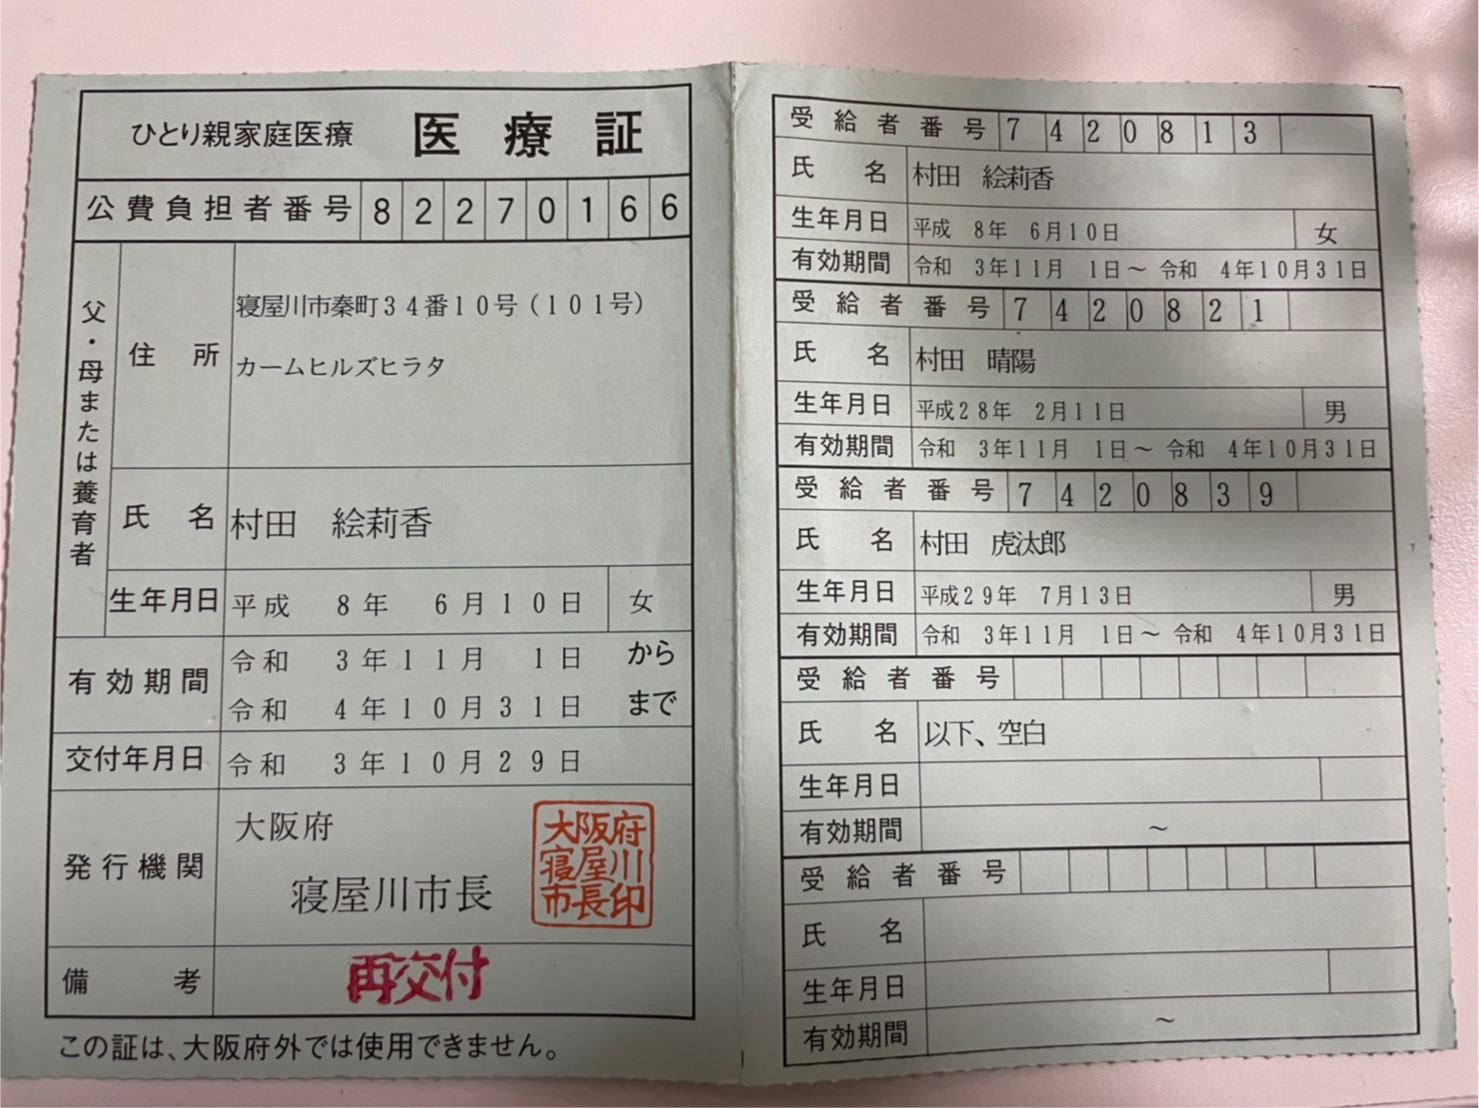 ひとり親家庭医療 医療証
公費負担者番号 82270166
父・母または養育者
住所 寝屋川市秦町34番10号(101号)
カームヒルズヒラタ
氏名 村田 絵莉香
生年月日 平成 8年 6月10日 女
有効期間 令和 3年11月 1日 から
令和 4年10月31日 まで
交付年月日 令和 3年10月29日
発行機関 大阪府
寝屋川市長
大阪府
寝屋川
市長印
備考 再交付
この証は、大阪府外では使用できません。
受給者番号 7420813
氏名 村田 絵莉香
生年月日 平成 8年 6月10日 女
有効期間 令和 3年11月 1日～ 令和 4年10月31日
受給者番号 7420821
氏名 村田 晴陽
生年月日 平成28年 2月11日 男
有効期間 令和 3年11月 1日～ 令和 4年10月31日
受給者番号 7420839
氏名 村田 虎汰郎
生年月日 平成29年 7月13日 男
有効期間 令和 3年11月 1日～ 令和 4年10月31日
受給者番号
氏名 以下、空白
生年月日
有効期間 ～
受給者番号
氏名
生年月日
有効期間 ～